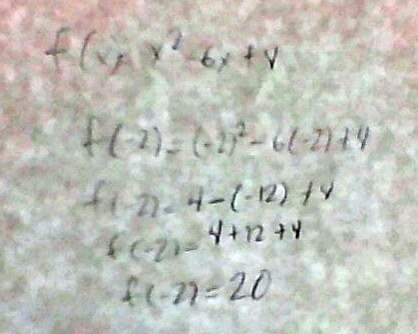 f(x) x² - 6x + 4
f(-2) = (-2)² - 6(-2) + 4
f(-2) = 4 - (-12) + 4
f(-2) = 4 + 12 + 4
f(-2) = 20